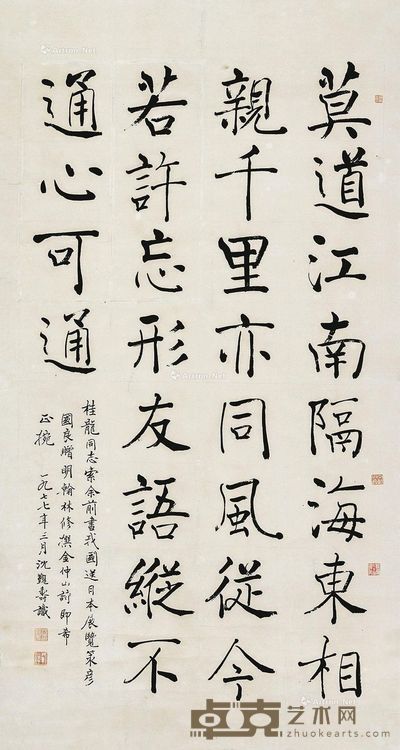 莫道江南隔海東相
親千里亦同風從今
若許忘形友語縱不
通心可通
桂龍同志索余前書我國送日本展覽張彥
國良贈明翰林修撰金仲山詩即希
正捥
一九七七年三月沈覲壽識
卓克艺术网
zhuokearts.com